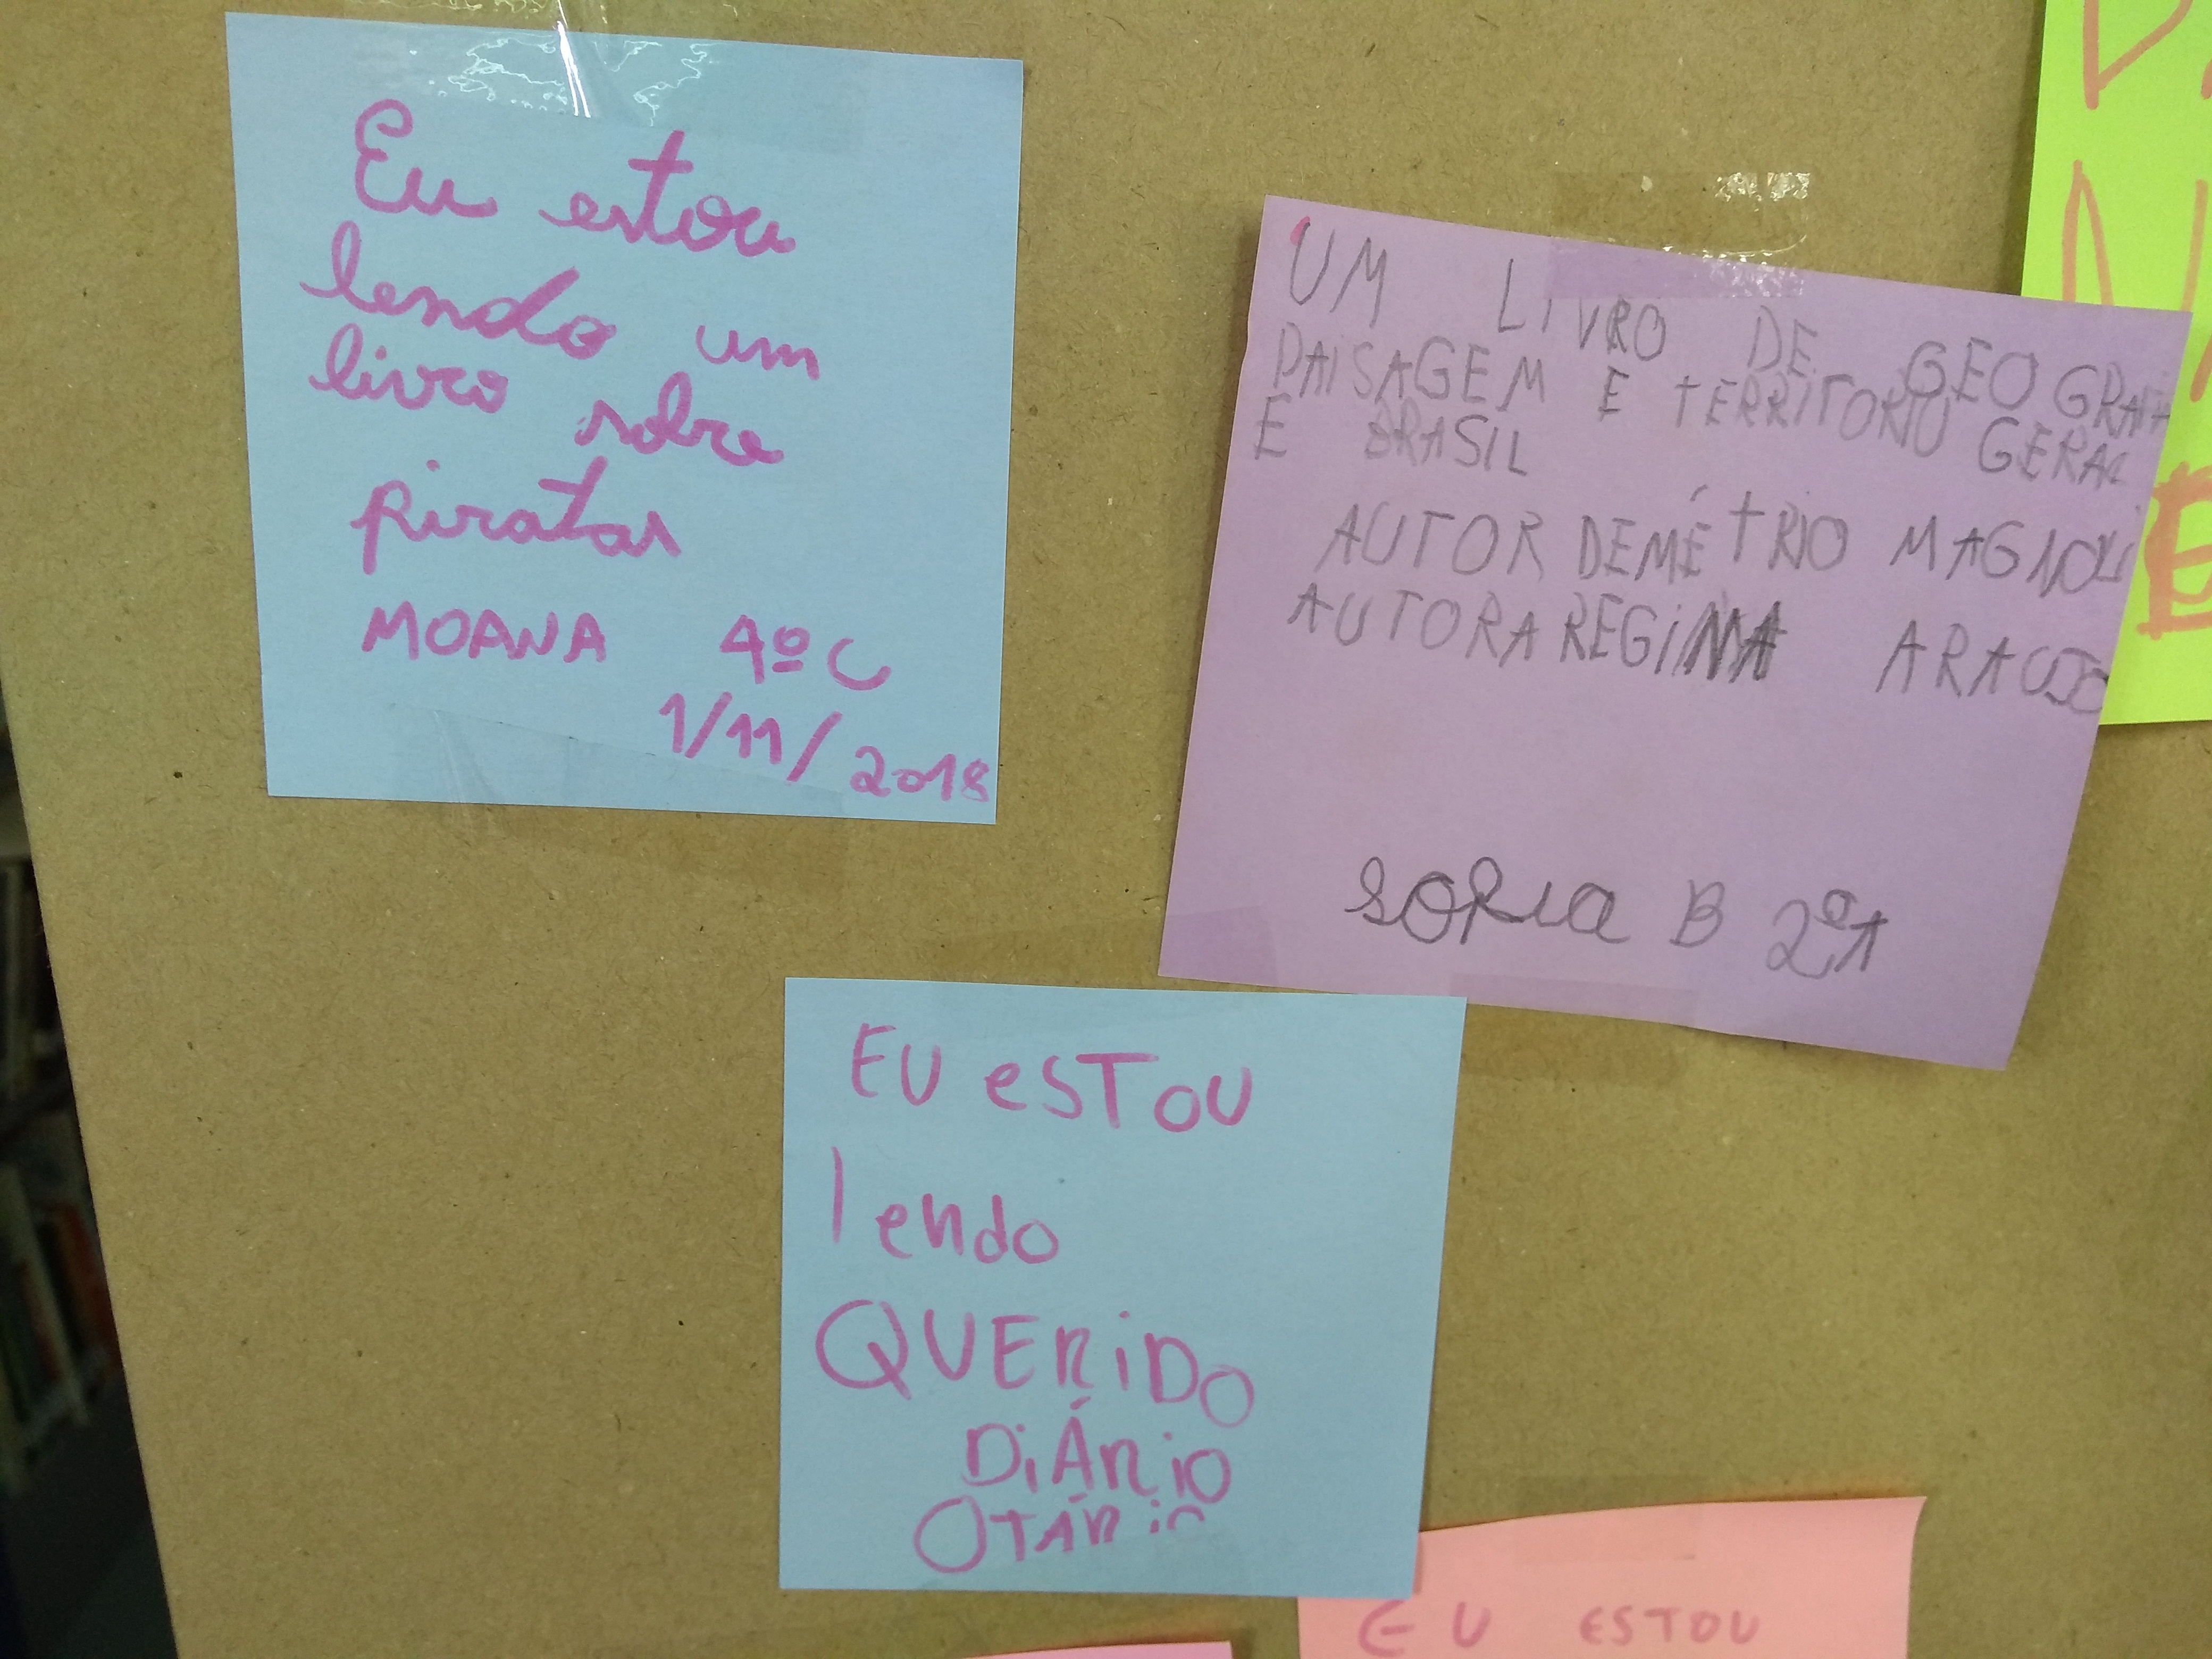 Eu estou
lendo um
livro sobre
piratas
MOANA 4º C
1/11/2018
UM LIVRO DE GEOGRAFIA
PAISAGEM E TERRITORIO GERAL
E BRASIL
AUTOR DEMÉTRIO MAGNOLI
AUTORA REGINA ARAUJO
SOFIA B 2º A
EU eSTOU
lendo
QUERiDO
DiÁRiO
OTÁRiO
EU ESTOU